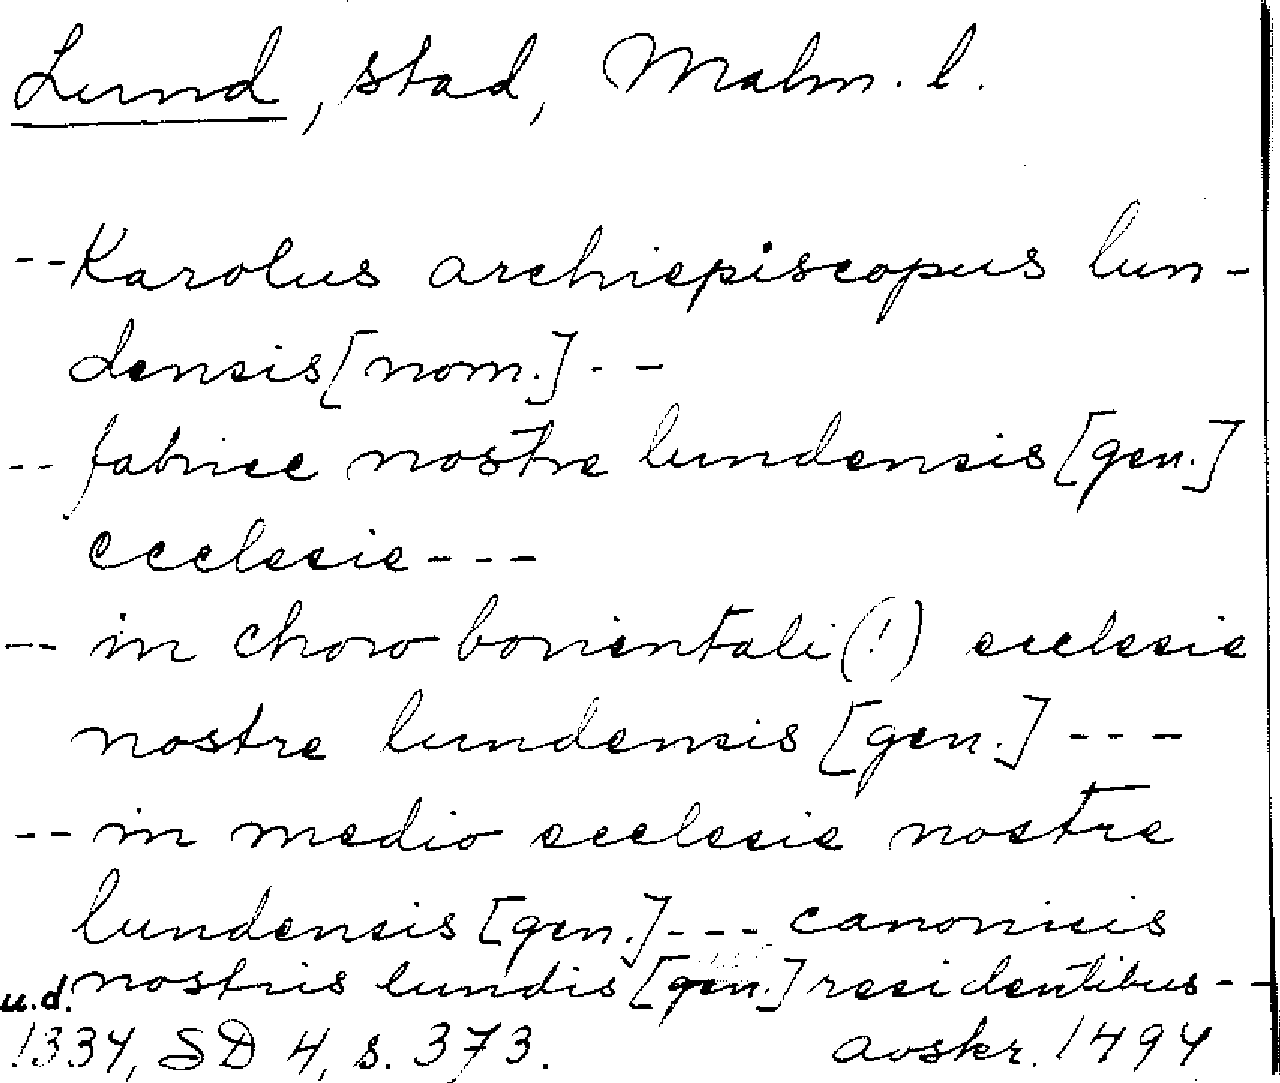 Lund, stad, Malm. l.
-- Karolus archiepiscopus lun-
densis [nom.] - -
-- fabrice nostre lundensis [gen.]
ecclesie - - -
-- in choro borientali (!) ecclesie
nostre lundensis [gen.] - - -
-- in medio ecclesie nostre
lundensis [gen.] - - - canonicis
nostris lundis [gen.] residentibus - -
u.d. 1334, SD 4, s. 373. avskr. 1494